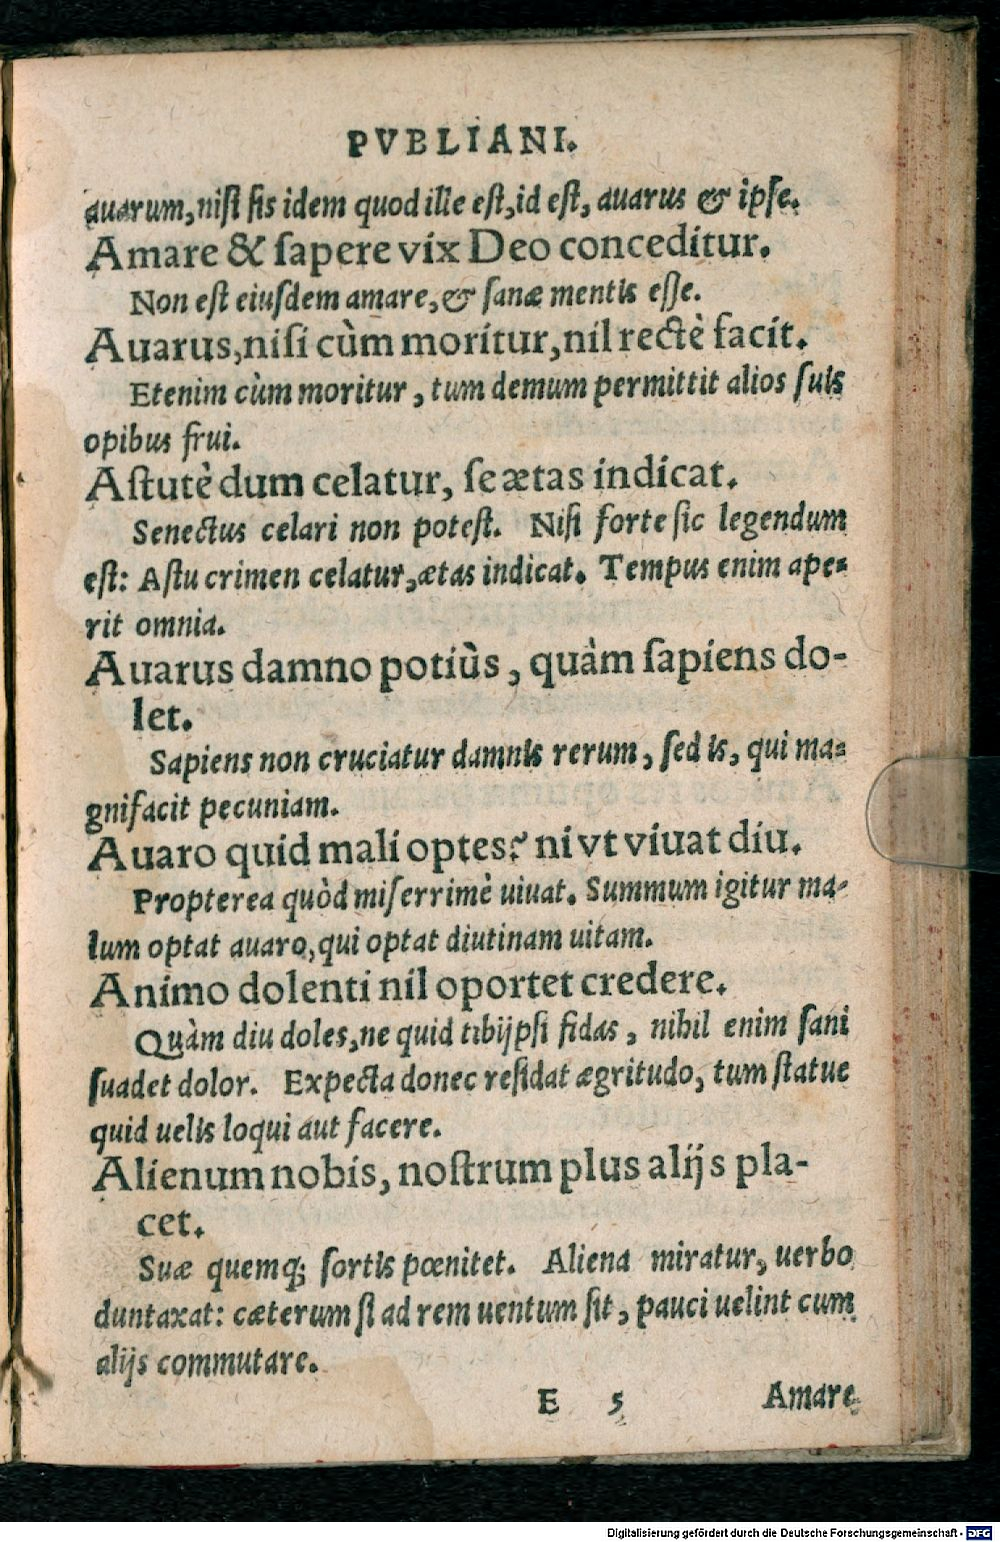 PVBLIANI.
auarum, nisi sis idem quod ille est, id est, auarus & ipse.
Amare & ſapere vix Deo conceditur.
Non est eiuſdem amare, & ſanæ mentis eſſe.
Auarus, niſi cùm moritur, nil rectè facit.
Etenim cùm moritur, tum demum permittit alios ſuis
opibus frui.
Aſtutè dum celatur, ſe ætas indicat.
Senectus celari non poteſt. Niſi forte ſic legendum
eſt: Aſtu crimen celatur, ætas indicat. Tempus enim ape-
rit omnia.
Auarus damno potiùs, quàm ſapiens do-
let.
Sapiens non cruciatur damnis rerum, ſed is, qui ma-
gnifacit pecuniam.
Auaro quid mali optes? ni vt viuat diu.
Propterea quòd miſerrimè uiuat. Summum igitur ma-
lum optat auaro, qui optat diutinam uitam.
Animo dolenti nil oportet credere.
Quàm diu doles, ne quid tibijpſi fidas, nihil enim ſani
ſuadet dolor. Expecta donec reſidat ægritudo, tum ſtatue
quid uelis loqui aut facere.
Alienum nobis, noſtrum plus alijs pla-
cet.
Suæ quemq; ſortis pœnitet. Aliena miratur, uerbo
duntaxat: cæterum ſi ad rem uentum ſit, pauci uelint cum
alijs commutare.
E 5 Amare
Digitalisierung gefördert durch die Deutsche Forschungsgemeinschaft - DFG